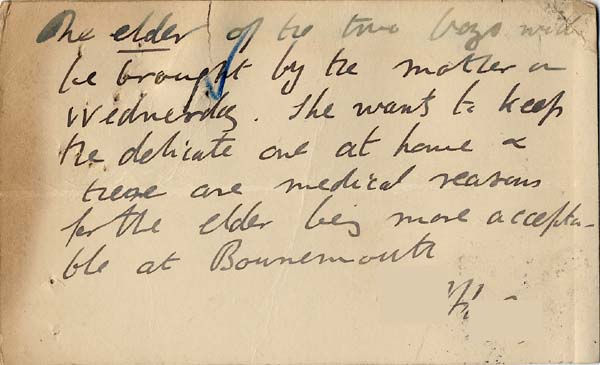 The elder of the two boys will
be brought by the mother on
Wednesday. She wants to keep
the delicate one at home &
these are medical reasons
for the elder being more accepta-
ble at Bournemouth